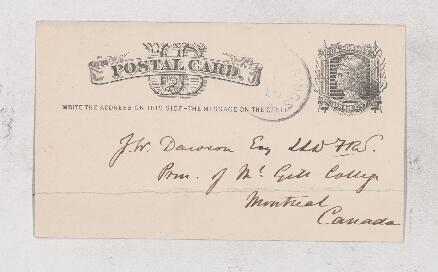 POSTAL CARD.
WRITE THE ADDRESS ON THIS SIDE–THE MESSAGE ON THE OTHER
J.W. Dawson Esq LLD FRS.
Prin. of Mc Gill College
Montreal
Canada